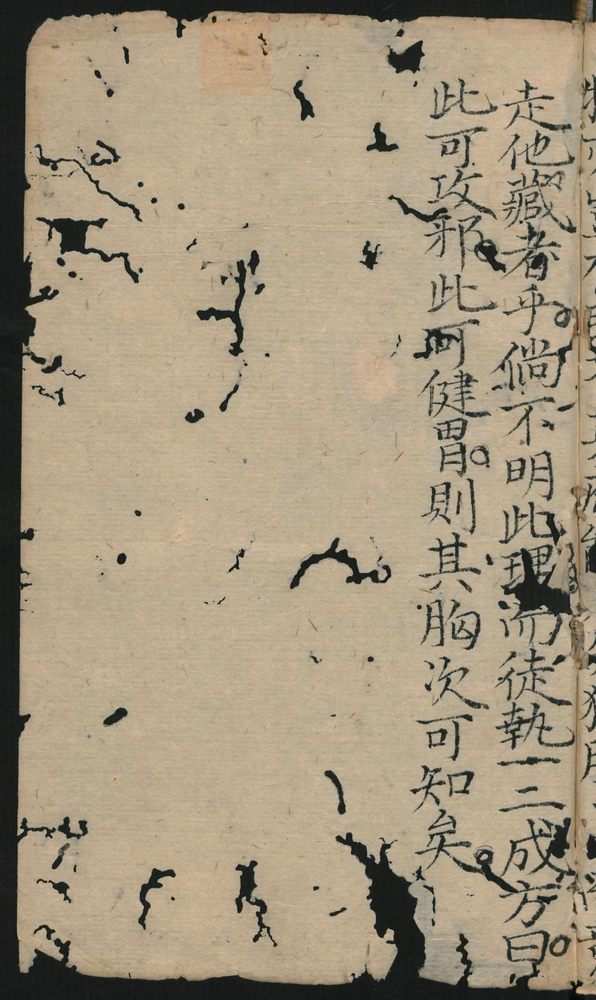 走他藏者乎倘不明此理而徒執一二成方曰
此可攻邪此可健胃則其胸次可知矣